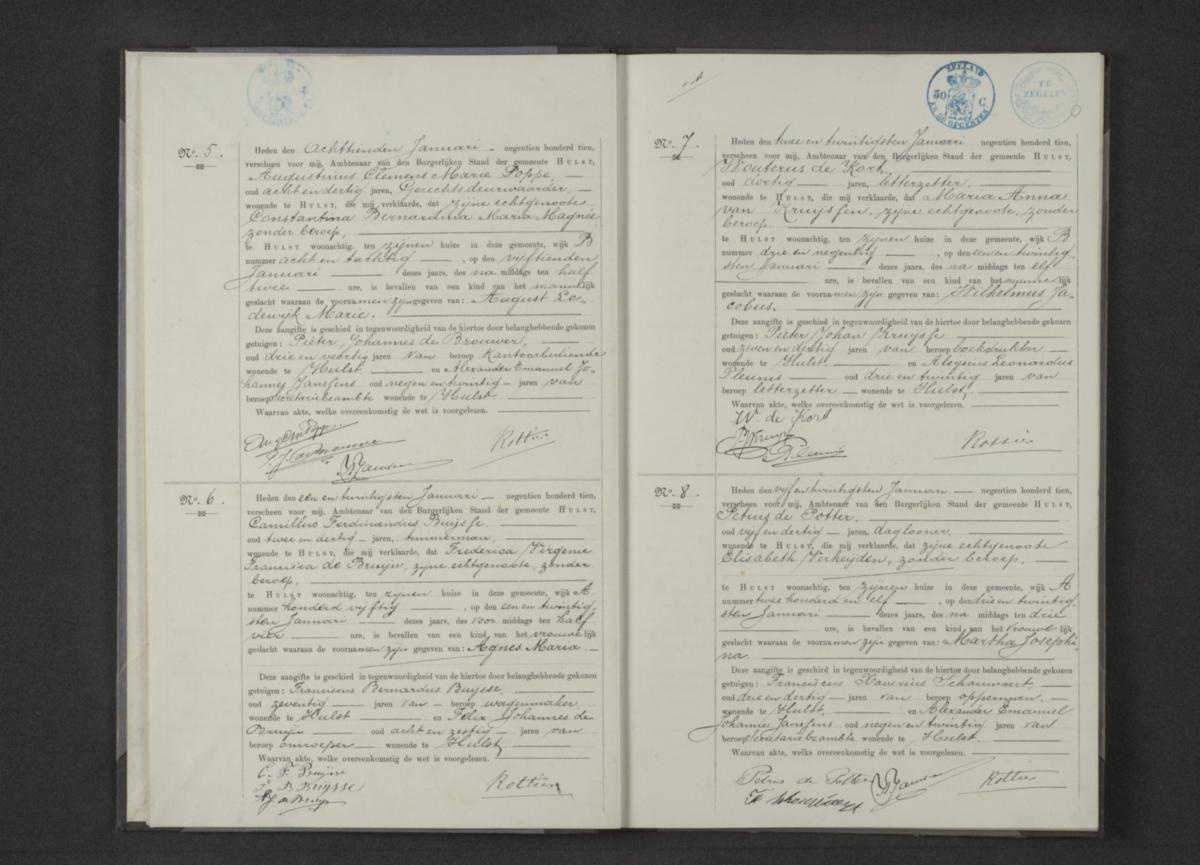 Nº. 5.
Heden den achttienden Januari negentien honderd tien,
verscheen voor mij, Ambtenaar van den Burgerlijken Stand der gemeente HULST,
Augustinus Clemens Marie Poppe,
oud acht en dertig jaren, Gerechtsdeurwaarder,
wonende te HULST, die mij verklaarde, dat zijne echtgenoote
Constantina Bernardina Maria Magnée
zonder beroep,
te HULST woonachtig, ten zijnen huize in deze gemeente, wijk B
nummer acht en tachtig, op den vijftienden
Januari dezes jaars, des na middags ten half
twee ure, is bevallen van een kind van het mannelijk
geslacht waaraan de voornamen zijn gegeven van: August Lo-
dewijk Marie.
Deze aangifte is geschied in tegenwoordigheid van de hiertoe door belanghebbende gekozen
getuigen: Pieter Johannes de Brouwer,
oud drie en veertig jaren van beroep kantoorbediende
wonende te Hulst en Alexander Emanuel Jo-
hannes Janssens oud negen en twintig jaren van
beroep secretariebeambte wonende te Hulst.
Waarvan akte, welke overeenkomstig de wet is voorgelezen.
Rottier
Nº. 6.
Heden den een en twintigsten Januari negentien honderd tien,
verscheen voor mij, Ambtenaar van den Burgerlijken Stand der gemeente HULST,
Camillus Ferdinandus Buijsse,
oud twee en dertig jaren, timmerman,
wonende te HULST, die mij verklaarde, dat Frederica Virgenie
Francisca de Bruijn, zijne echtgenoote, zonder
beroep,
te HULST woonachtig, ten zijnen huize in deze gemeente, wijk A
nummer honderd vijftig, op den een en twintig-
sten Januari dezes jaars, des voor middags ten half
vier ure, is bevallen van een kind van het vrouwelijk
geslacht waaraan de voornamen zijn gegeven van: Agnes Maria.
Deze aangifte is geschied in tegenwoordigheid van de hiertoe door belanghebbende gekozen
getuigen: Franciscus Bernardus Buijsse,
oud zeventig jaren van beroep wagenmaker
wonende te Hulst en Felix Johannes de
Bruijn oud acht en zestig jaren van
beroep omroeper wonende te Hulst.
Waarvan akte, welke overeenkomstig de wet is voorgelezen.
C. F. Buijsse
F. B. Buijsse
F J de Bruijn
Rottier
ZEELAND
50 C.
TE
ZEGELEN
Nº. 7.
Heden den twee en twintigsten Januari negentien honderd tien,
verscheen voor mij, Ambtenaar van den Burgerlijken Stand der gemeente HULST,
Wouterus de Kort,
oud dertig jaren, letterzetter,
wonende te HULST, die mij verklaarde, dat Maria Anna
van Kruijssen, zijne echtgenoote, zonder
beroep,
te HULST woonachtig, ten zijnen huize in deze gemeente, wijk B
nummer drie en negentig, op den een en twintig-
sten Januari dezes jaars, des na middags ten elf
ure, is bevallen van een kind van het mannelijk
geslacht waaraan de voornamen zijn gegeven van: Wilhelmus Ja-
cobus.
Deze aangifte is geschied in tegenwoordigheid van de hiertoe door belanghebbende gekozen
getuigen: Pieter Johan Kruijsse
oud zeven en dertig jaren van beroep boekdrukker
wonende te Hulst en Aloysius Leonardus
Pleunis oud drie en twintig jaren van
beroep letterzetter wonende te Hulst,
Waarvan akte, welke overeenkomstig de wet is voorgelezen.
W. de Kort
Rottier
Nº. 8.
Heden den vijf en twintigsten Januari negentien honderd tien,
verscheen voor mij, Ambtenaar van den Burgerlijken Stand der gemeente HULST,
Petrus de Potter,
oud vijf en dertig jaren, daglooner,
wonende te HULST, die mij verklaarde, dat zijne echtgenoote
Elisabeth Verheijden, zonder beroep,
te HULST woonachtig, ten zijnen huize in deze gemeente, wijk A
nummer twee honderd en elf, op den drie en twintig-
sten Januari dezes jaars, des na middags ten drie
ure, is bevallen van een kind van het vrouwelijk
geslacht waaraan de voornamen zijn gegeven van: Martha Josephi-
na.
Deze aangifte is geschied in tegenwoordigheid van de hiertoe door belanghebbende gekozen
getuigen: Franciscus Xaverius Schouwaert,
oud drie en dertig jaren van beroep opperman
wonende te Hulst en Alexander Emanuel
Johannes Janssens oud negen en twintig jaren van
beroep secretariebeambte wonende te Hulst.
Waarvan akte, welke overeenkomstig de wet is voorgelezen.
Petrus de Potter
Rottier